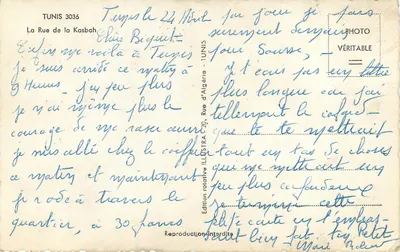 TUNIS 3036
La Rue de la Kasbah
Tunis le 24 Avril
Chère Biquette
Enfin me voilà à Tunis
je suis arrivé ce matin à
9 heures. J'ai peu plus
je n'ai même plus le
courage de me raser aussi
je suis allé chez le coiffeur
ce matin et maintenant
je rode à travers le
quartier, à 30 francs
par jour je pars
surement demain
pour Sousse,
Je t'écris pas un lettre
plus longue car j'ai
tellement le cafard
que je te mettrait
tout un tas de choses
que me mettrait un
peu plus
je termine cette
carte en t'embras-
sant bien fort. ton Petit
PHOTO
VÉRITABLE
Edition rosative ILLUSTRA 20, Rue d'Algérie - TUNIS
Reproduction interdite